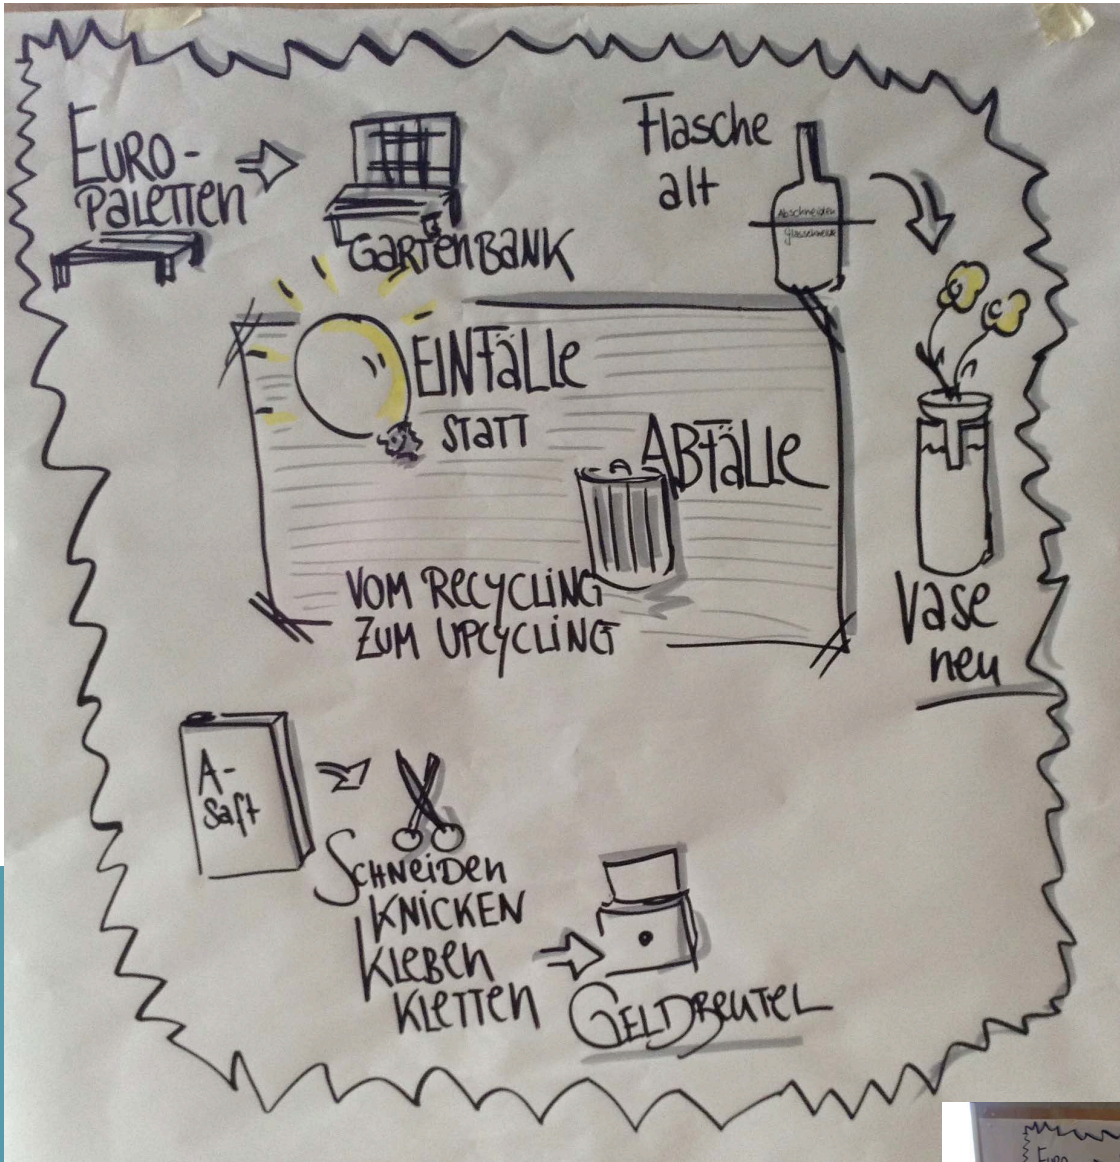 EURO-
PALETTEN
GARTENBANK
Flasche
alt
Abschneiden
EINFäLLE
STATT
ABFäLLE
VOM RECYCLING
ZUM UPCYCLING
Vase
neu
A-
Saft
SCHNEIDEN
KNICKEN
KLEBEN
KLETTEN
GELDBEUTEL